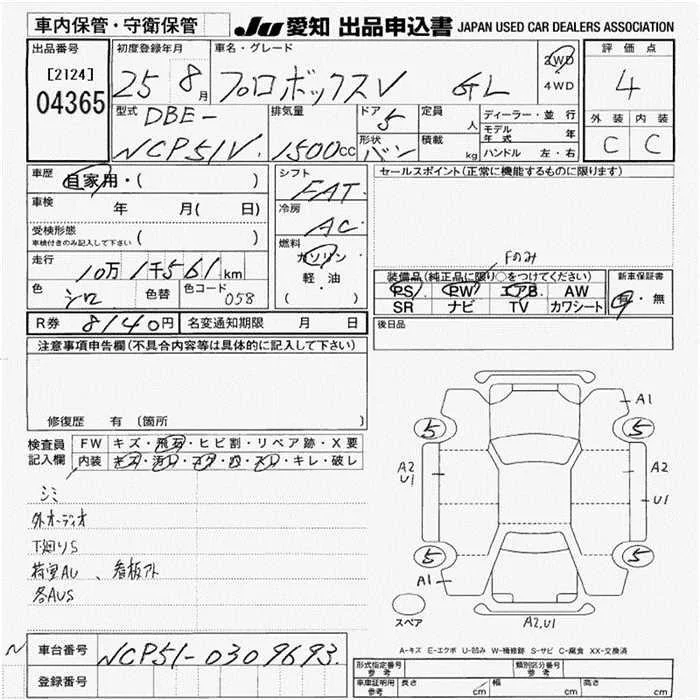 車内保管・守衛保管
JU 愛知 出品申込書 JAPAN USED CAR DEALERS ASSOCIATION
出品番号
[2124]
04365
初度登録年月
25 8月
車名・グレード
プロボックスV GL
2WD
4WD
評価点
4
外装 内装
C C
型式
DBE-
NCP51V
排気量
1500cc
ドア
5
形状
バン
定員
人
積載
kg
ディーラー・並行
モデル年式 年
ハンドル 左・右
車歴
自家用・( )
車検
年 月( 日)
受検形態
車検付きのみ記入して下さい ( )
走行
10万1千561km
色
シロ
色替
色コード 058
シフト
FAT
冷房
AC
燃料
ガソリン
軽・油
( )
R券 8140円
名変通知期限 月 日
セールスポイント(正常に機能するものに限ります)
Fのみ
装備品(純正品に限り○をつけてください)
PS PW エアB AW
SR ナビ TV カワシート
新車保証書
有・無
後日品
注意事項申告欄(不具合内容等は具体的に記入して下さい)
修復歴 有 〔箇所 〕
検査員記入欄
FW キズ・飛石・ヒビ割・リペア跡・X要
内装 キズ・汚レ・コゲ・穴・スレ・キレ・破レ
シミ
外オーディオ
下廻りS
荷室AU、看板アト
各AUS
A1
5 5
A2 U1
A2
U1
5 5
A1
A2,U1
スペア
A-キズ E-エクボ U-凹み W-補修跡 S-サビ C-腐食 XX-交換済
N
車台番号 NCP51-0309693
登録番号
形式指定番号 参考
類別区分番号 参考
車庫証明用 参考
長さ cm 幅 cm 高さ cm